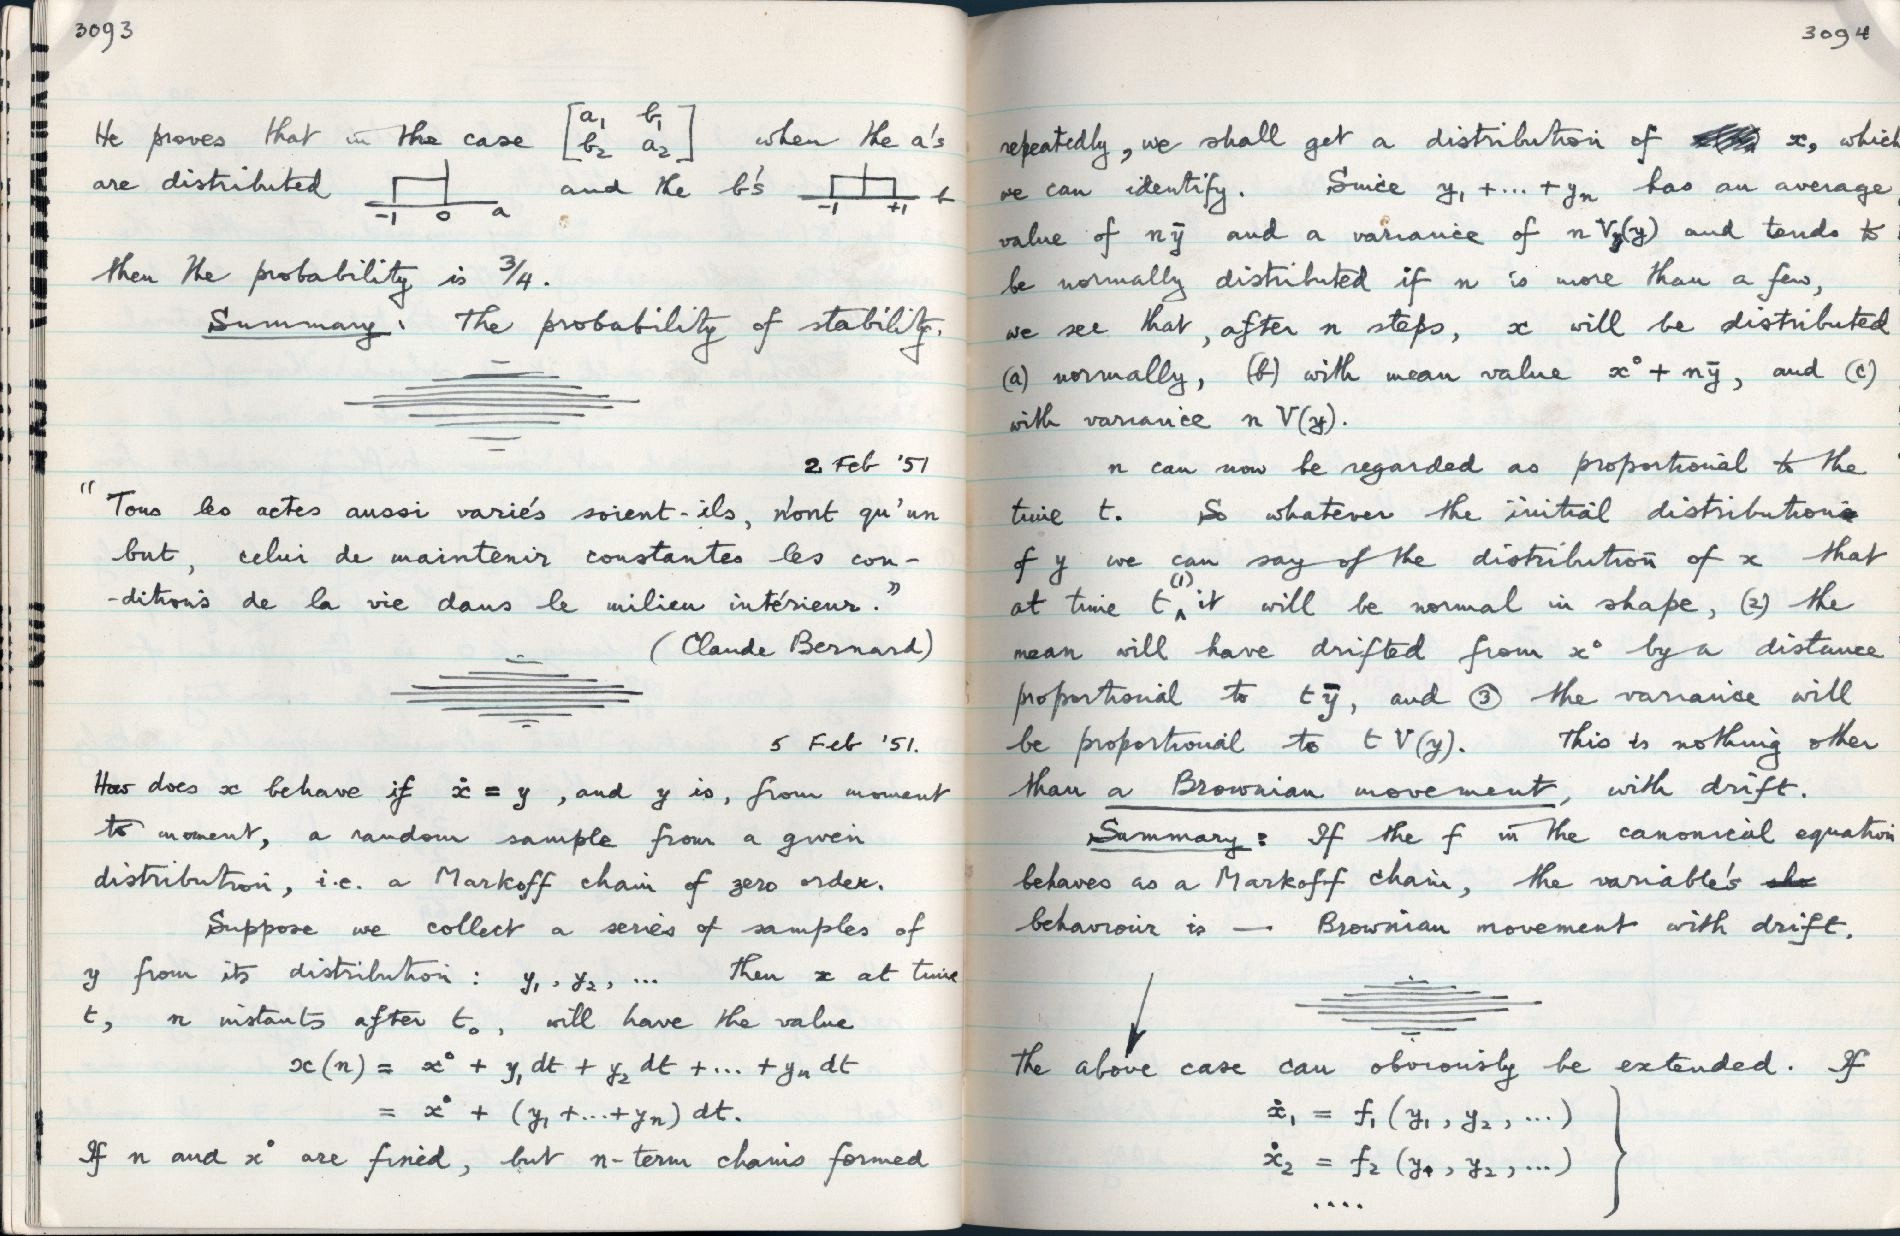 3093
He proves that in the case [a₁ b₁ b₂ a₂] when the a's
are distributed -1 0 a and the b's -1 +1 b
then the probability is 3/4.
Summary: The probability of stability.
2 Feb '51
"Tous les actes aussi variés soient-ils, n'ont qu'un
but, celui de maintenir constantes les con-
-ditions de la vie dans le milieu intérieur."
(Claude Bernard)
5 Feb '51.
How does x behave if ẋ = y, and y is, from moment
to moment, a random sample from a given
distribution, i.e. a Markoff chain of zero order.
Suppose we collect a series of samples of
y from its distribution: y₁, y₂, ... Then x at time
t, n instants after t₀, will have the value
x(n) = x° + y₁dt + y₂dt + ... + yₙdt
= x° + (y₁ + ... + yₙ) dt.
If n and x° are fixed, but n-term chains formed
3094
repeatedly, we shall get a distribution of x, which
we can identify. Since y₁ + ... + yₙ has an average
value of nȳ and a variance of n V(y) and tends to
be normally distributed if n is more than a few,
we see that, after n steps, x will be distributed
(a) normally, (b) with mean value x° + nȳ, and (c)
with variance n V(y).
n can now be regarded as proportional to the
time t. So whatever the initial distribution
of y we can say of the distribution of x that
at time t, (1) it will be normal in shape, (2) the
mean will have drifted from x° by a distance
proportional to tȳ, and ③ the variance will
be proportional to t V(y). This is nothing other
than a Brownian movement, with drift.
Summary: If the f in the canonical equation
behaves as a Markoff chain, the variable's
behaviour is — Brownian movement with drift.
The above case can obviously be extended. If
ẋ₁ = f₁(y₁, y₂, ...)
ẋ₂ = f₂(y₁, y₂, ...)
....